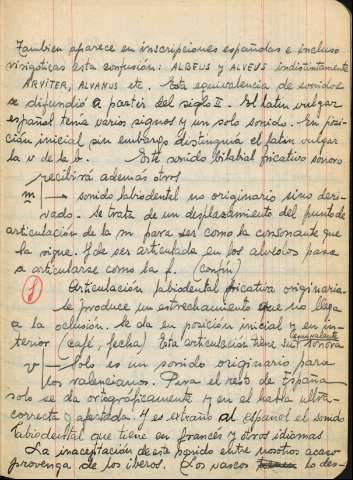 Tambien aparece en inscripciones españolas e incluso
visigóticas esta confusión: ALBEUS y ALVESS indistintamente
ARVITER, ALVANUS etc. Esta equivalencia de sonidos
se difundió a partir del siglo II. El latin vulgar
español tenia varios signos y un solo sonido. En posi-
ción inicial sin embargo distinguía el latin vulgar
la v de la b. Este sonido bilabial fricativo sonoro
recibirá además otros
m → sonido labiodental no originario sino deri-
vado. Se trata de un desplazamiento del punto de
articulación de la m para ser como la consonante que
la sigue. Y de ser articulada en los alveolos pasa
a articularse como la f. (confin)
f Articulación labiodental fricativa originaria.
Se produce un estrechamiento que no llega
a la oclusión. Se da en posición inicial y en in-
terior (café, fecha) Esta articulación tiene su equivalente sonora
v — Solo es un sonido originario para
los valencianos. Para el resto de España
solo se da ortograficamente y en el habla ultra-
correcta y afectada. Y es extraño al español el sonido
labiodental que tiene en francés y otros idiomas
La inaceptación de este sonido entre nosotros acaso
provenga de los iberos. (Los vascos lo des-